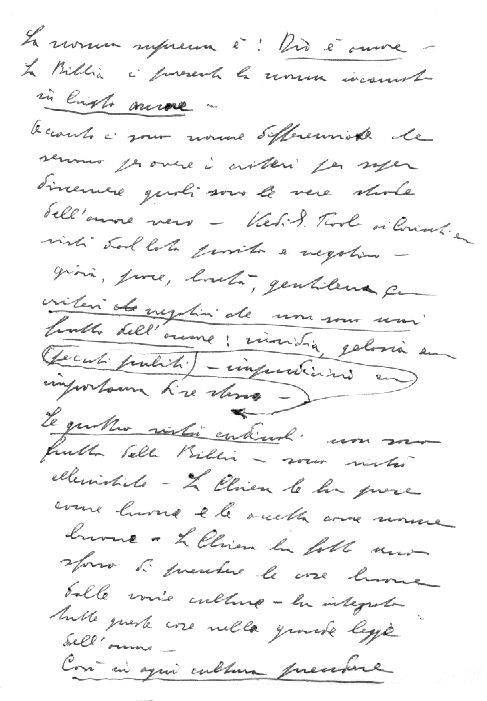 La norma suprema è: Dio è amore –
La Bibbia ci presenta la norma incarnata
in Cristo amore –
Accanto ci sono norme differenziate che
servono per avere i criteri per saper
discernere quali sono le vere strade
dell'amore vero – Vedi S. Paolo ai Corinti ecc
visti dal lato positivo e negativo –
gioia, pace, bontà, gentilezza ecc
criteri negativi che non sono mai
frutto dell'amore: invidia, gelosia ecc
– impudicizia ecc
importanza
Le quattro virtù cardinali non sono
frutto della Bibbia – sono virtù
– La Chiesa le ha prese
come buone e le accetta come norme
buone – La Chiesa ha fatto uno
sforzo di prendere le cose buone
dalle varie culture – ha integrato
tutte queste cose nella grande legge
dell'amore –
Così in ogni cultura prendere